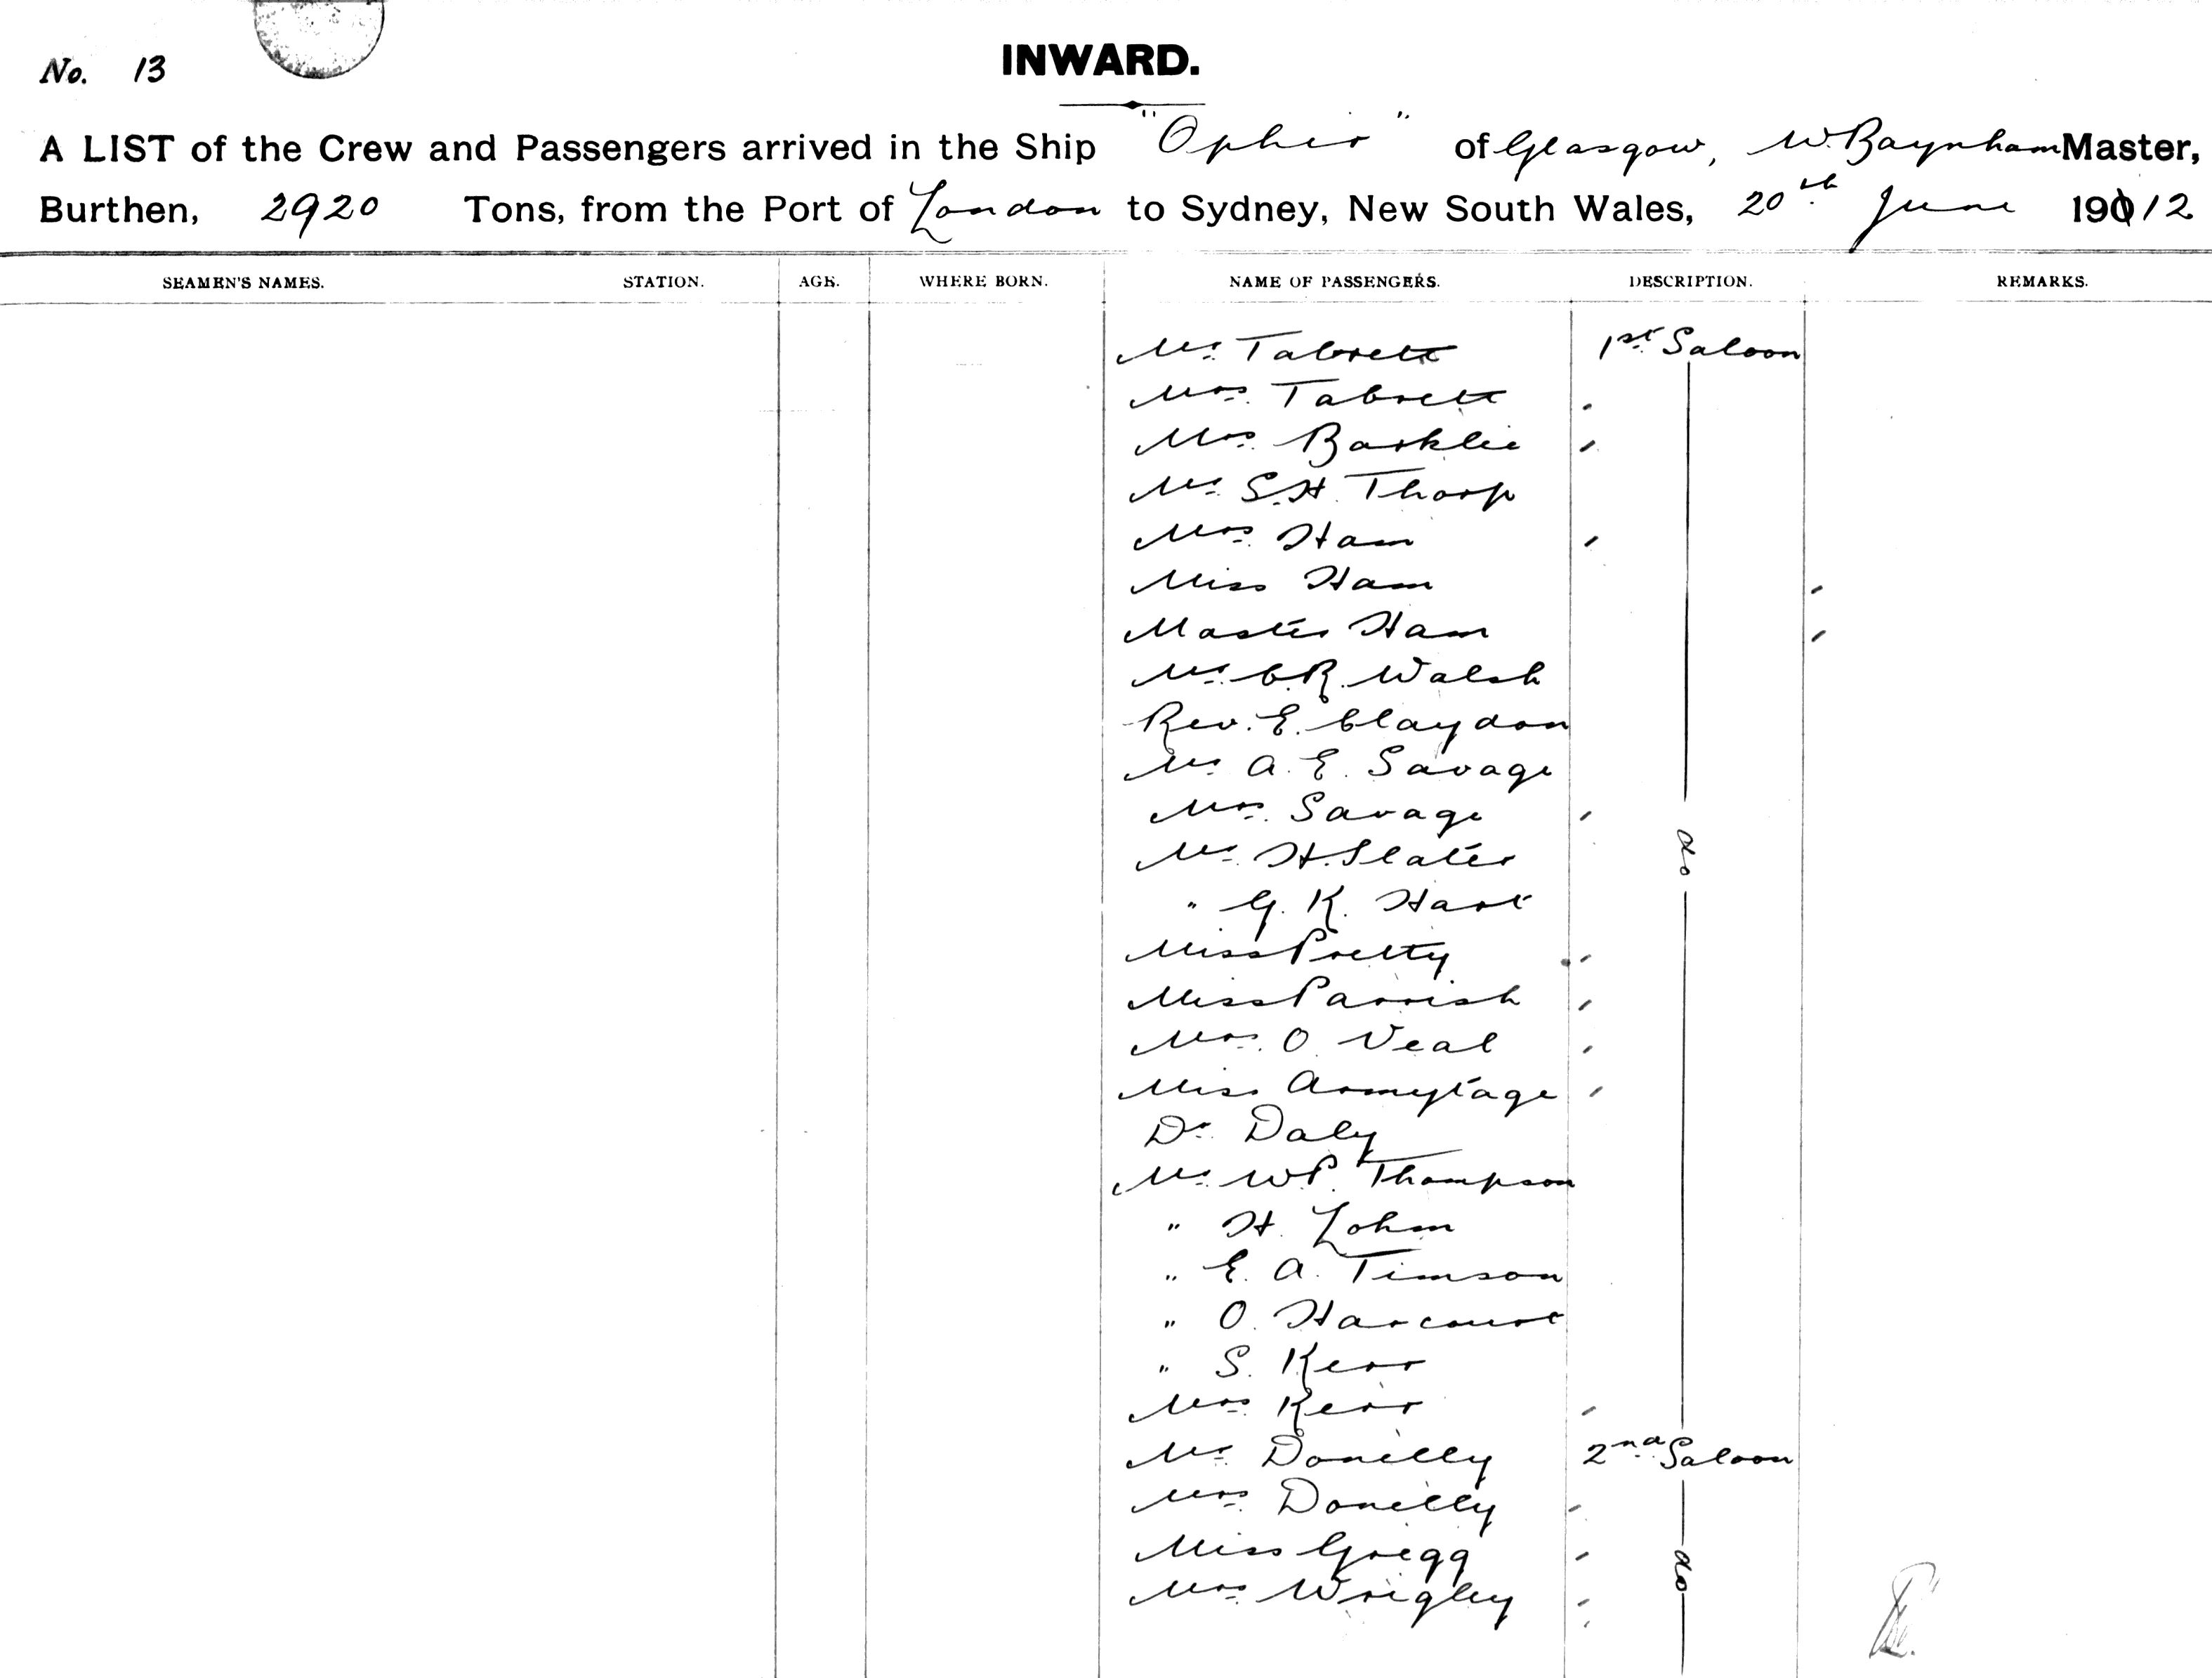 No. 13
INWARD.
A LIST of the Crew and Passengers arrived in the Ship "Ophir" of Glasgow, W. Baynham Master,
Burthen, 2920 Tons, from the Port of London to Sydney, New South Wales, 20th June 19012
SEAMEN'S NAMES. STATION. AGE. WHERE BORN. NAME OF PASSENGERS. DESCRIPTION. REMARKS.
Mr. Tabrett 1st Saloon
Mrs. Tabrett
Mrs. Barklie
Mr. S.H. Thorp
Mrs. Ham
Miss Ham
Master Ham
Mr. C.R. Walsh
Rev. E. Claydon
Mr. A. E. Savage
Mrs. Savage
Mr. H. Slater do
" G. K. Hart
Miss Pretty
Miss Parrish
Mrs. O Neal
Miss Armytage
Dr. Daly
Mr. W.P. Thompson
" H. Lohm
" E. A. Timson
" O. Harcourt
" S. Kerr
Mrs. Kerr
Mr. Donelly 2nd Saloon
Mrs. Donelly
Miss Gregg do
Mrs. Wrigley